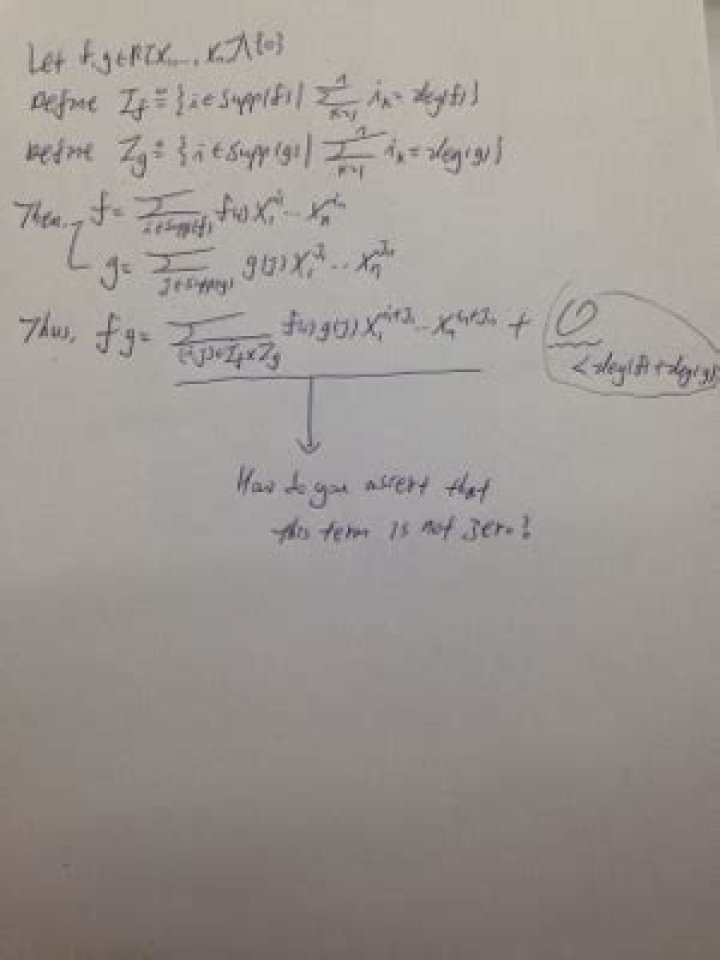 Let f,g∈R[X₁,…,Xₙ]\{0}
Define I_f ≡ {i∈Supp(f) | Σ_{k=1}^{n} i_k = deg(f)}
Define I_g ≡ {i∈Supp(g) | Σ_{k=1}^{n} i_k = deg(g)}
Then, f = Σ_{i∈Supp(f)} f(i) X₁^{i₁} … Xₙ^{iₙ}
g = Σ_{j∈Supp(g)} g(j) X₁^{j₁} … Xₙ^{jₙ}
Thus, fg = Σ_{(i,j)∈I_f×I_g} f(i)g(j) X₁^{i₁+j₁} … Xₙ^{iₙ+jₙ} +
< deg(f)+deg(g)
How do you assert that
this term is not zero?